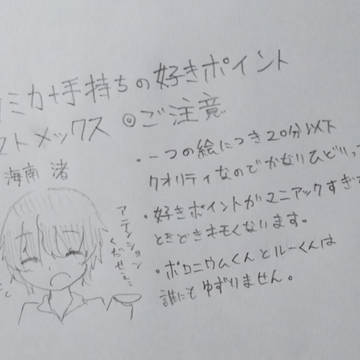 ミカ+手持ちの好きポイント
ストメックス ◎ご注意
海南 渚
・一つの絵につき20分以下
クオリティなのでかなりひどいっ
・好きポイントがマニアックすぎて
ときどきキモくなります。
・ポロニウムくんとルーくんは
誰にもゆずりません。
アテンション
くだせぇ